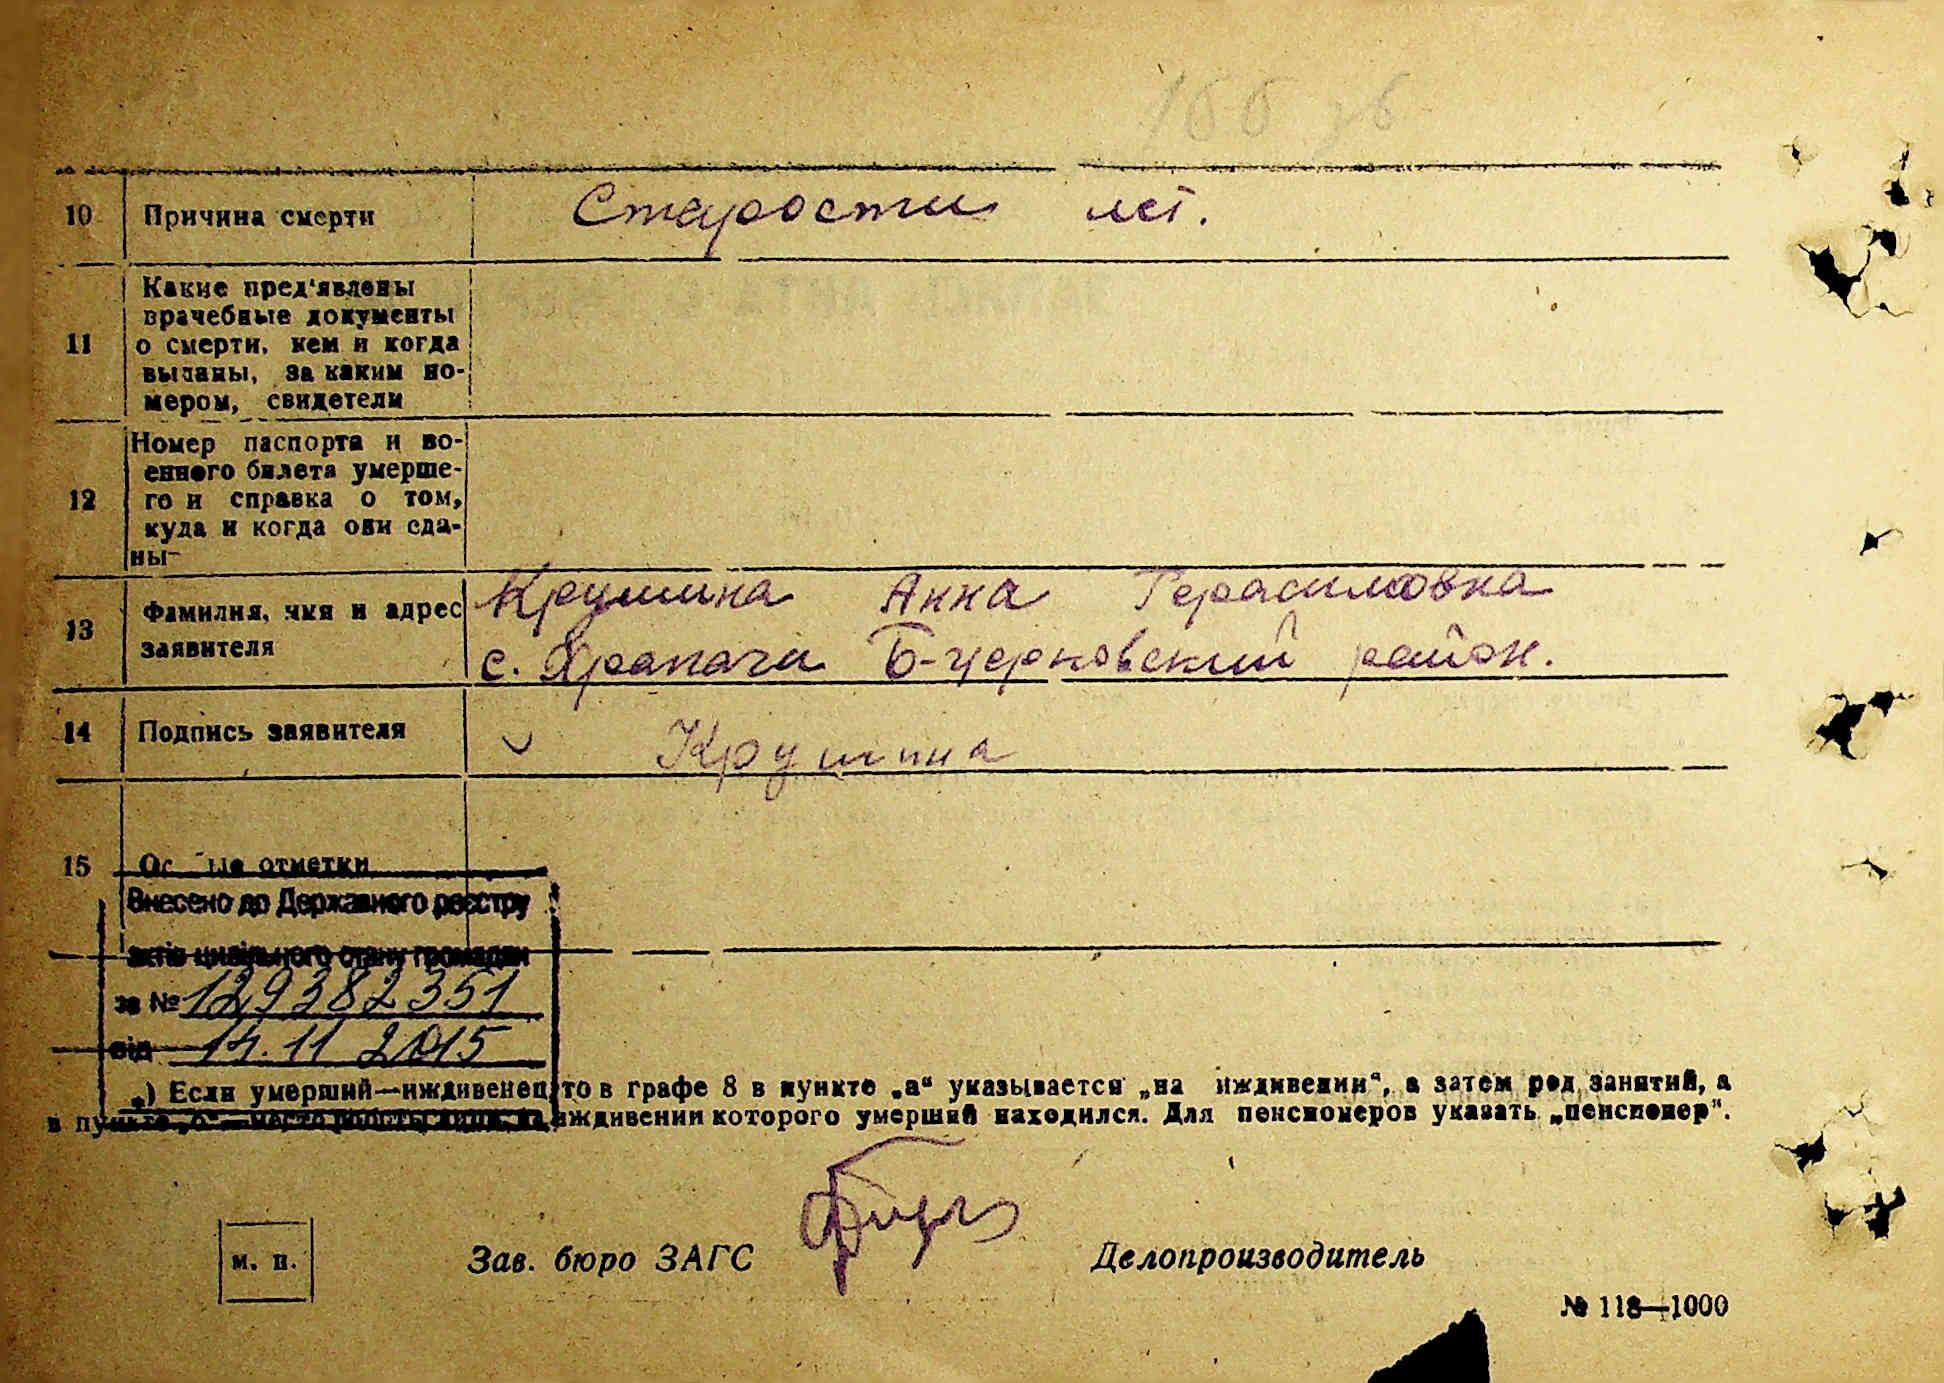 10 Причина смерти Старости лет.
11 Какие пред'явлены
врачебные документы
о смерти, кем и когда
выданы, за каким но-
мером, свидетели
12 Номер паспорта и во-
енного билета умерше-
го и справка о том,
куда и когда они сда-
ны
13 Фамилия, имя и адрес
заявителя
Крушина Анна Герасимовна
с. Храпачи Б-церковский район.
14 Подпись заявителя Крушина
15 Особые отметки
Внесено до Державного реєстру
актів цивільного стану громадян
за № 129382351
від 14.11 2015
*) Если умерший—иждивенец, то в графе 8 в пункте „а“ указывается „на иждивении“, а затем род занятий, а
в пункте „б“—место работы лица, на иждивении которого умерший находился. Для пенсионеров указать „пенсионер".
м. п. Зав. бюро ЗАГС Делопроизводитель
№ 118—1000